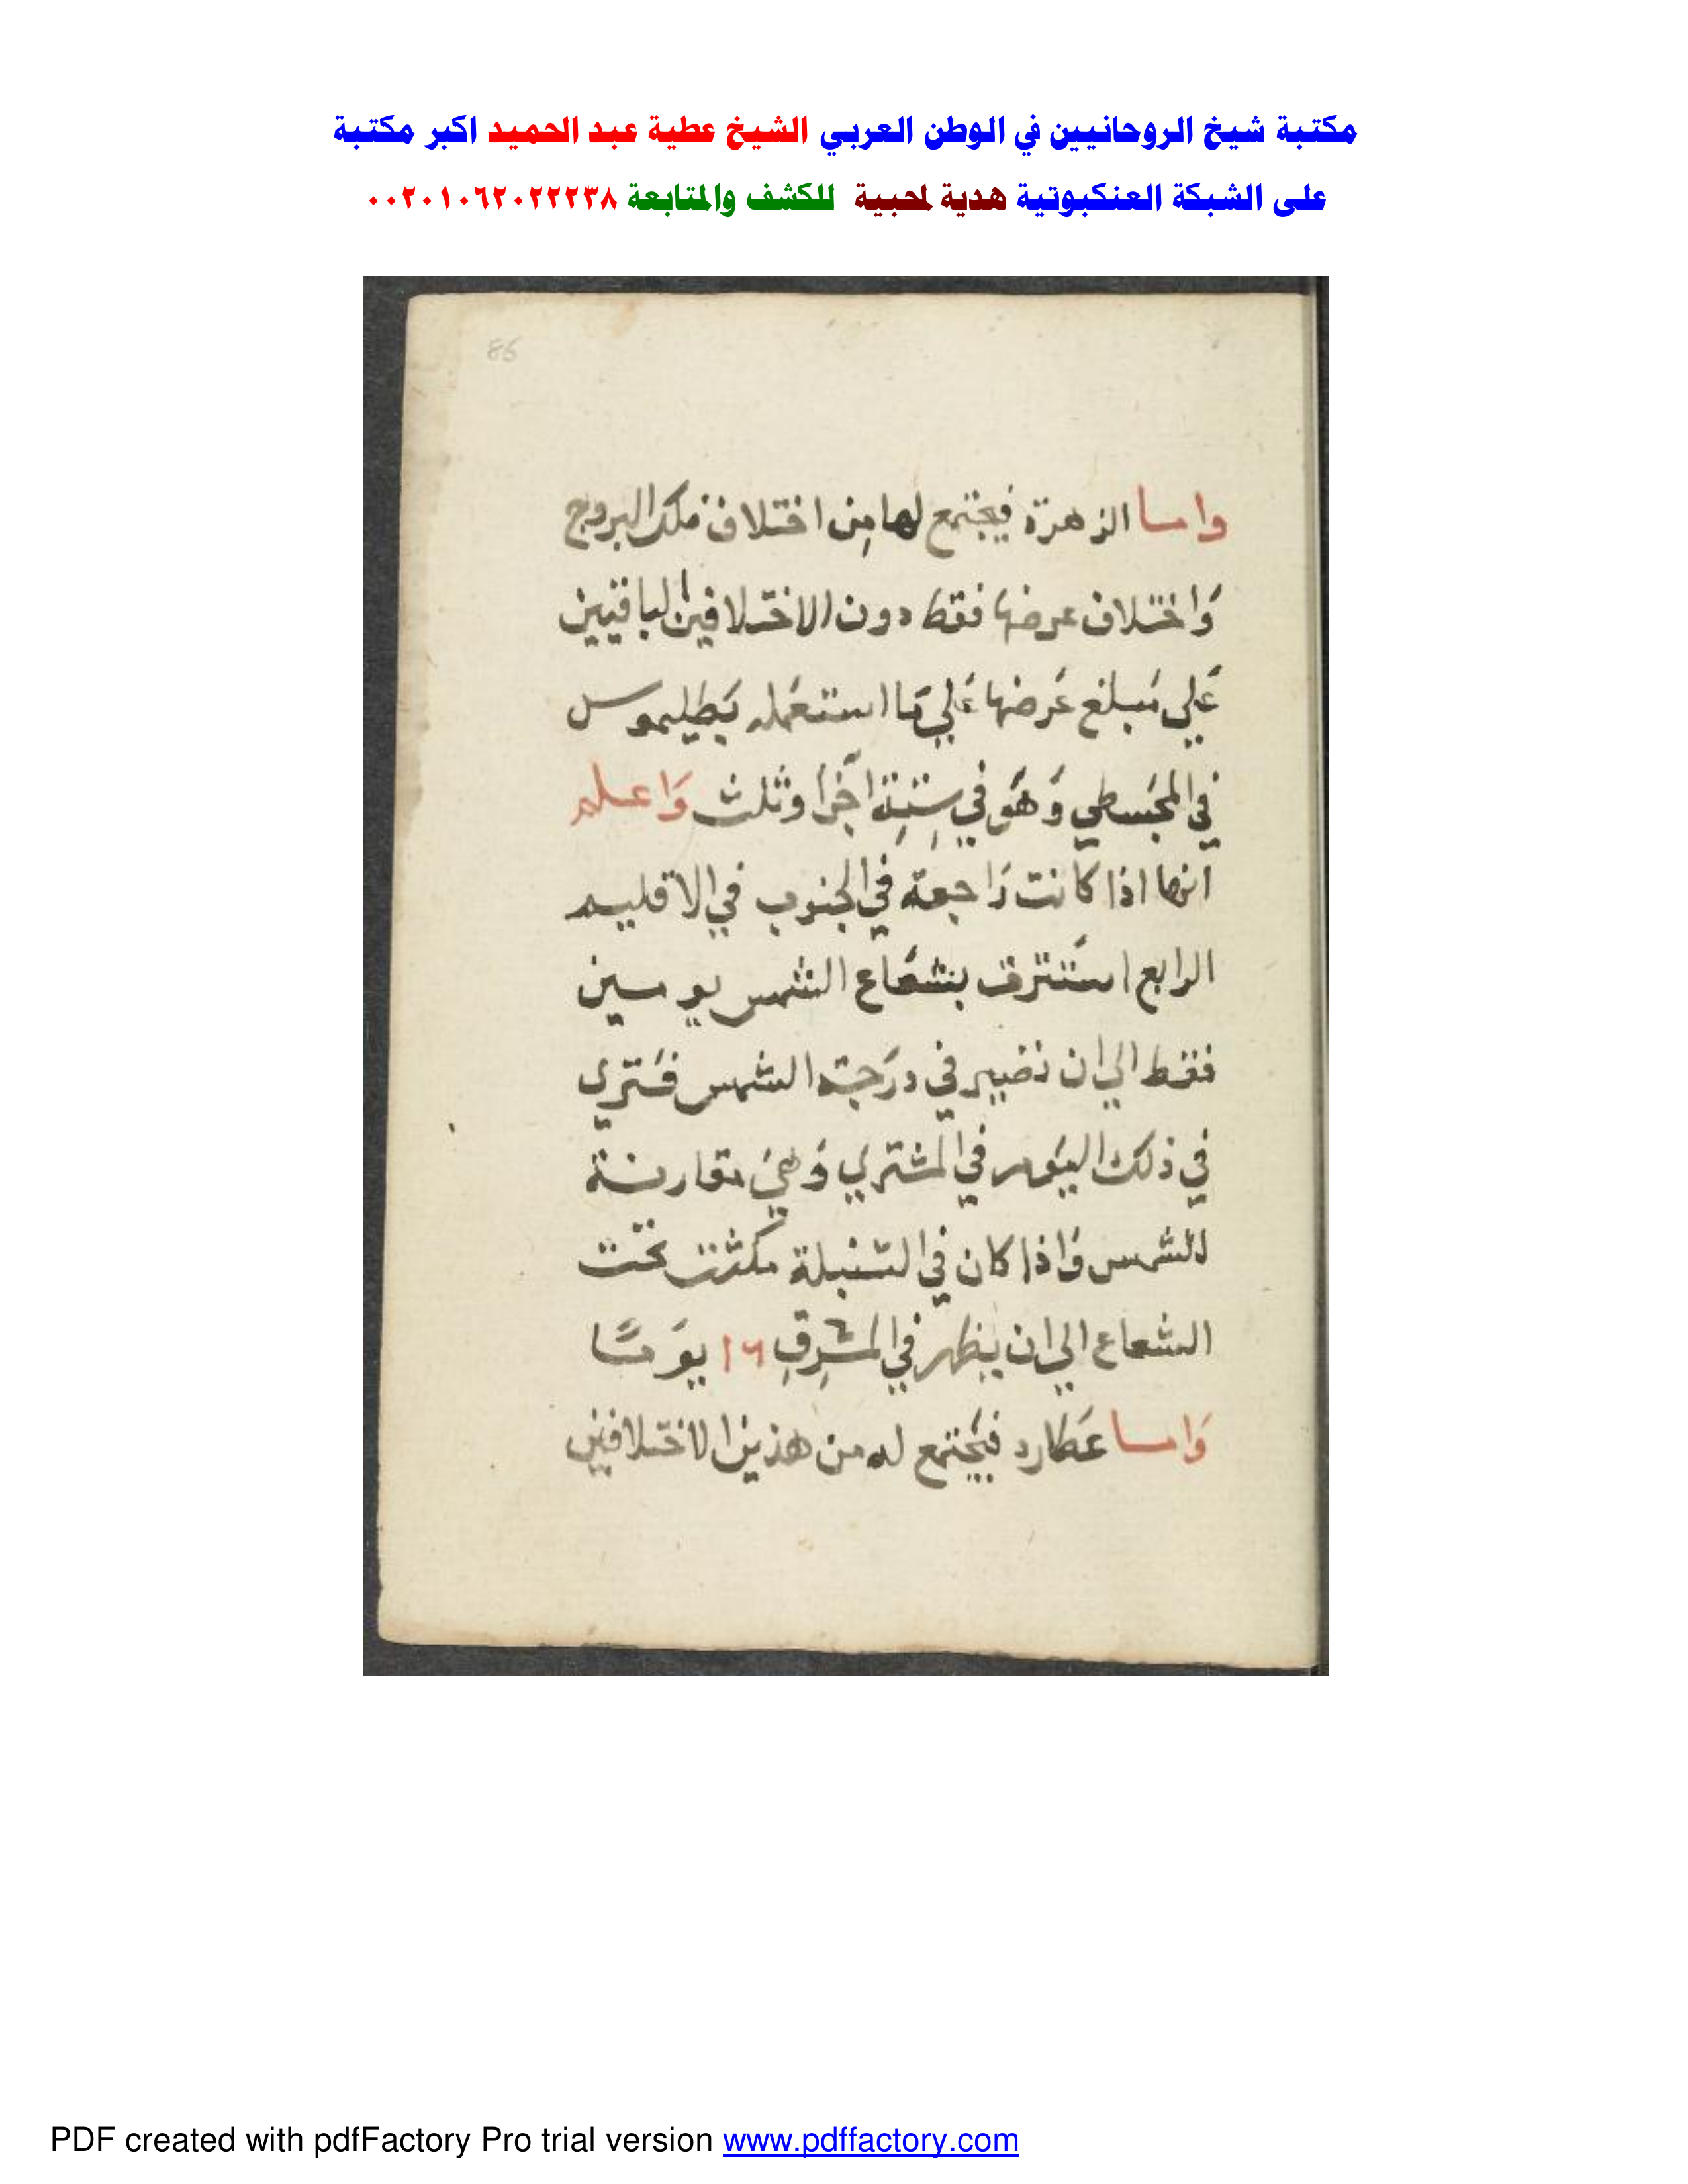 مكتبة شيخ الروحانيين في الوطن العربي الشيخ عطية عبد الحميد اكبر مكتبة
على الشبكة العنكبوتية هدية لمحبية للكشف والمتابعة ٠٠٢٠١٠٦٢٠٢٢٢٣٨
86
واما الزهرة فيجتمع لها مِن اختلاف فلك البروج
وَاختلاف عرضها فقط دون الاختلافين الباقيين
عَلي مَبلغ عَرضها عَلي مَا استعمَله بَطليموس
في المجَسطي وَهُو في سِتِة اجزا وثلث وَاعلم
انها اذا كانت رَاجعة في الجنوب في الاقليم
الرابع استَترت بشعَاع الشمس يومين
فقط الي ان تصير في درَجة الشمس فتَري
في ذلك اليَوم في المشتري وَهيَ مقارنة
للشمس وَاذا كان في السَنبلة مكثت تحت
الشعاع الي ان يظهر في المشرِقِ ١٦ يوَمًا
وَاما عَطارد فيَجتمع له من هذين الاختلافين
PDF created with pdfFactory Pro trial version www.pdffactory.com